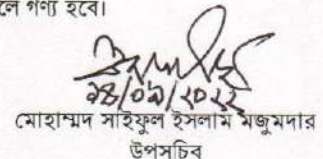 লে গণ্য হবে।
১৪/০৯/২০২২
মোহাম্মদ সাইফুল ইসলাম মজুমদার
উপসচিব